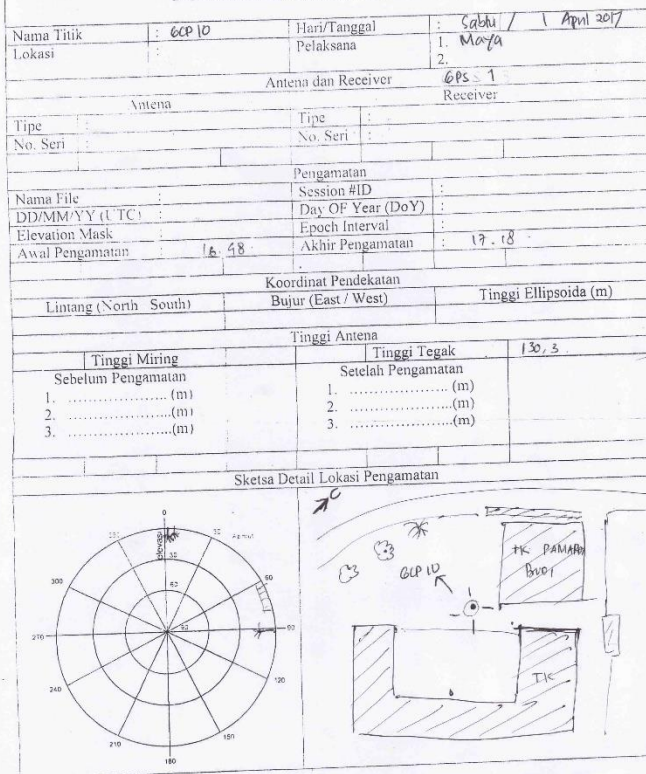 Nama Titik : GCP 10 Hari/Tanggal : Sabtu / 1 April 2017
Lokasi : Pelaksana 1. Maya
2.
Antena dan Receiver GPS : 1
Antena Receiver
Tipe : Tipe :
No. Seri : No. Seri :
Pengamatan
Nama File : Session #ID :
DD/MM/YY (UTC) : Day OF Year (DoY) :
Elevation Mask : Epoch Interval :
Awal Pengamatan : 16.48 Akhir Pengamatan : 17.18
Koordinat Pendekatan
Lintang (North South) Bujur (East / West) Tinggi Ellipsoida (m)
Tinggi Antena
Tinggi Miring Tinggi Tegak 130,3
Sebelum Pengamatan Setelah Pengamatan
1. .................... (m) 1. .................... (m)
2. .....................(m) 2. .....................(m)
3. .....................(m) 3. .....................(m)
Sketsa Detail Lokasi Pengamatan
0
330 30 Azimut
elevasi
30
300 60 60
270 90 90
240 120
210 150
180
GCP 10
TK PAMARDI
BUDI
TK